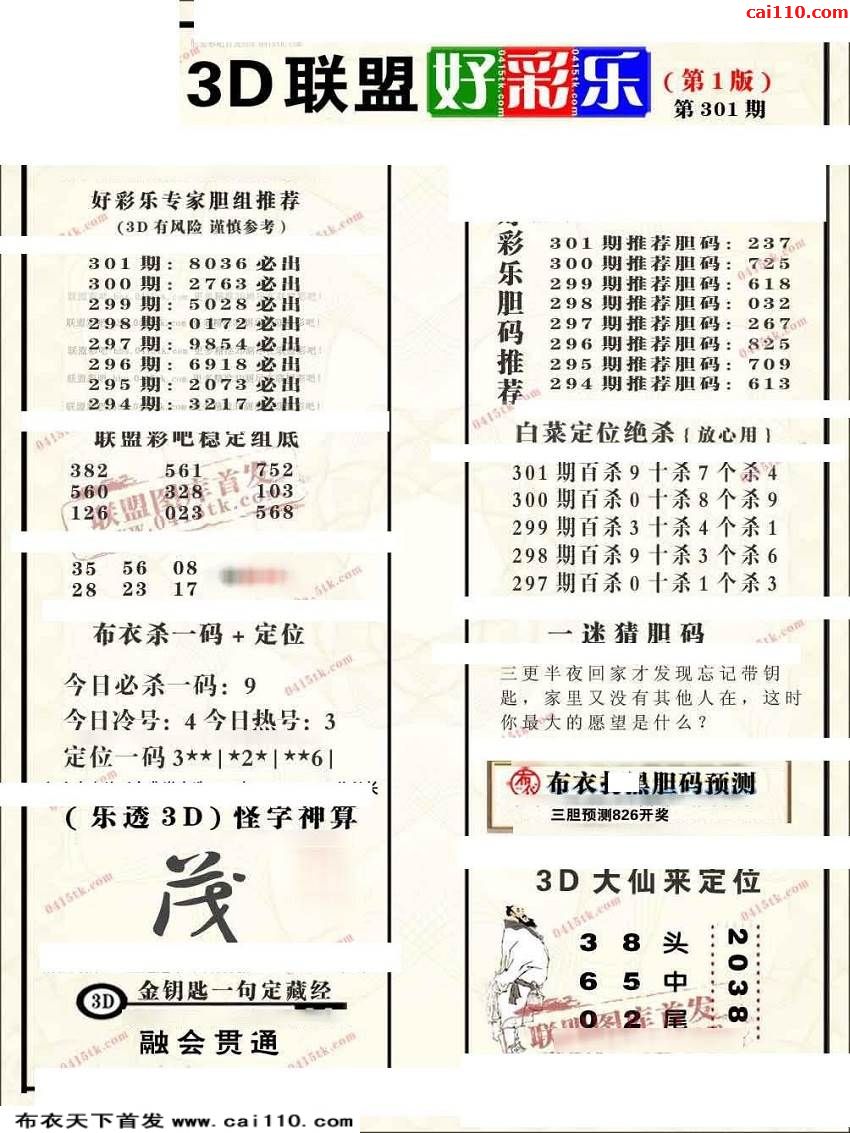 cai110.com
3D联盟好彩乐
(第1版)
第301期
好彩乐专家胆组推荐
(3D有风险 谨慎参考)
301期:8036必出
300期:2763必出
299期:5028必出
298期:0172必出
297期:9854必出
296期:6918必出
295期:2073必出
294期:3217必出
联盟彩吧稳定组底
382 561 752
560 328 103
126 023 568
35 56 08
28 23 17
布衣杀一码+定位
今日必杀一码:9
今日冷号:4 今日热号:3
定位一码3**|*2*|**6|
(乐透3D)怪字神算
茂
3D 金钥匙一句定藏经
融会贯通
彩乐胆码推荐
301期推荐胆码:237
300期推荐胆码:725
299期推荐胆码:618
298期推荐胆码:032
297期推荐胆码:267
296期推荐胆码:825
295期推荐胆码:709
294期推荐胆码:613
白菜定位绝杀{放心用}
301期百杀9十杀7个杀4
300期百杀0十杀8个杀9
299期百杀3十杀4个杀1
298期百杀9十杀3个杀6
297期百杀0十杀1个杀3
一迷猜胆码
三更半夜回家才发现忘记带钥
匙,家里又没有其他人在,这时
你最大的愿望是什么?
布衣 胆码预测
三胆预测826开奖
3D大仙来定位
3 8 头
6 5 中
0 2 尾
2038
联盟图库首发
www.0415tk.com
0415tk.com
布衣天下首发 www.cai110.com